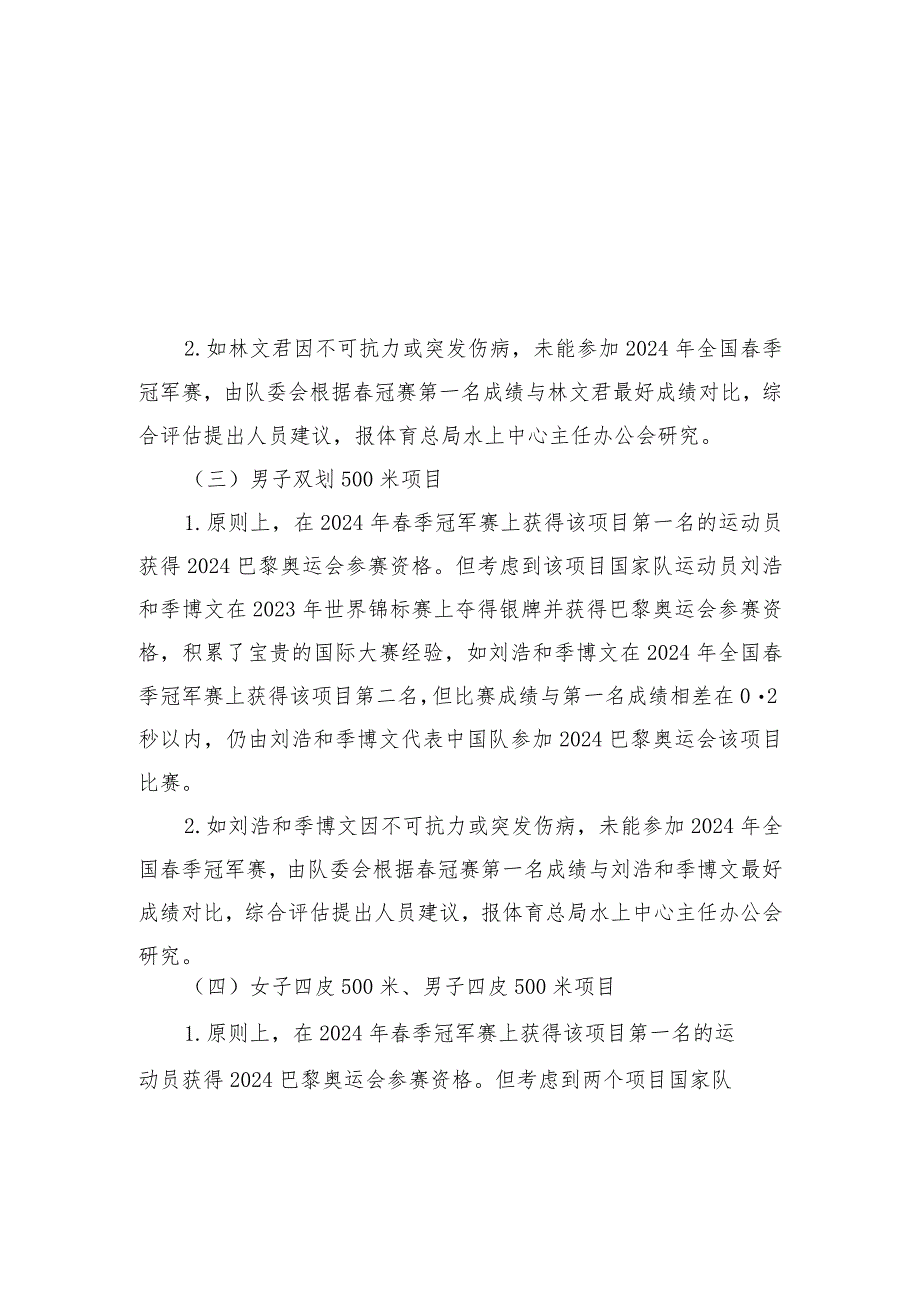 2.如林文君因不可抗力或突发伤病，未能参加 2024 年全国春季
冠军赛，由队委会根据春冠赛第一名成绩与林文君最好成绩对比，综
合评估提出人员建议，报体育总局水上中心主任办公会研究。
（三）男子双划 500 米项目
1.原则上，在 2024 年春季冠军赛上获得该项目第一名的运动员
获得 2024 巴黎奥运会参赛资格。但考虑到该项目国家队运动员刘浩
和季博文在 2023 年世界锦标赛上夺得银牌并获得巴黎奥运会参赛资
格，积累了宝贵的国际大赛经验，如刘浩和季博文在 2024 年全国春
季冠军赛上获得该项目第二名,但比赛成绩与第一名成绩相差在 0·2
秒以内，仍由刘浩和季博文代表中国队参加 2024 巴黎奥运会该项目
比赛。
2.如刘浩和季博文因不可抗力或突发伤病，未能参加 2024 年全
国春季冠军赛，由队委会根据春冠赛第一名成绩与刘浩和季博文最好
成绩对比，综合评估提出人员建议，报体育总局水上中心主任办公会
研究。
（四）女子四皮 500 米、男子四皮 500 米项目
1.原则上，在 2024 年春季冠军赛上获得该项目第一名的运
动员获得 2024 巴黎奥运会参赛资格。但考虑到两个项目国家队